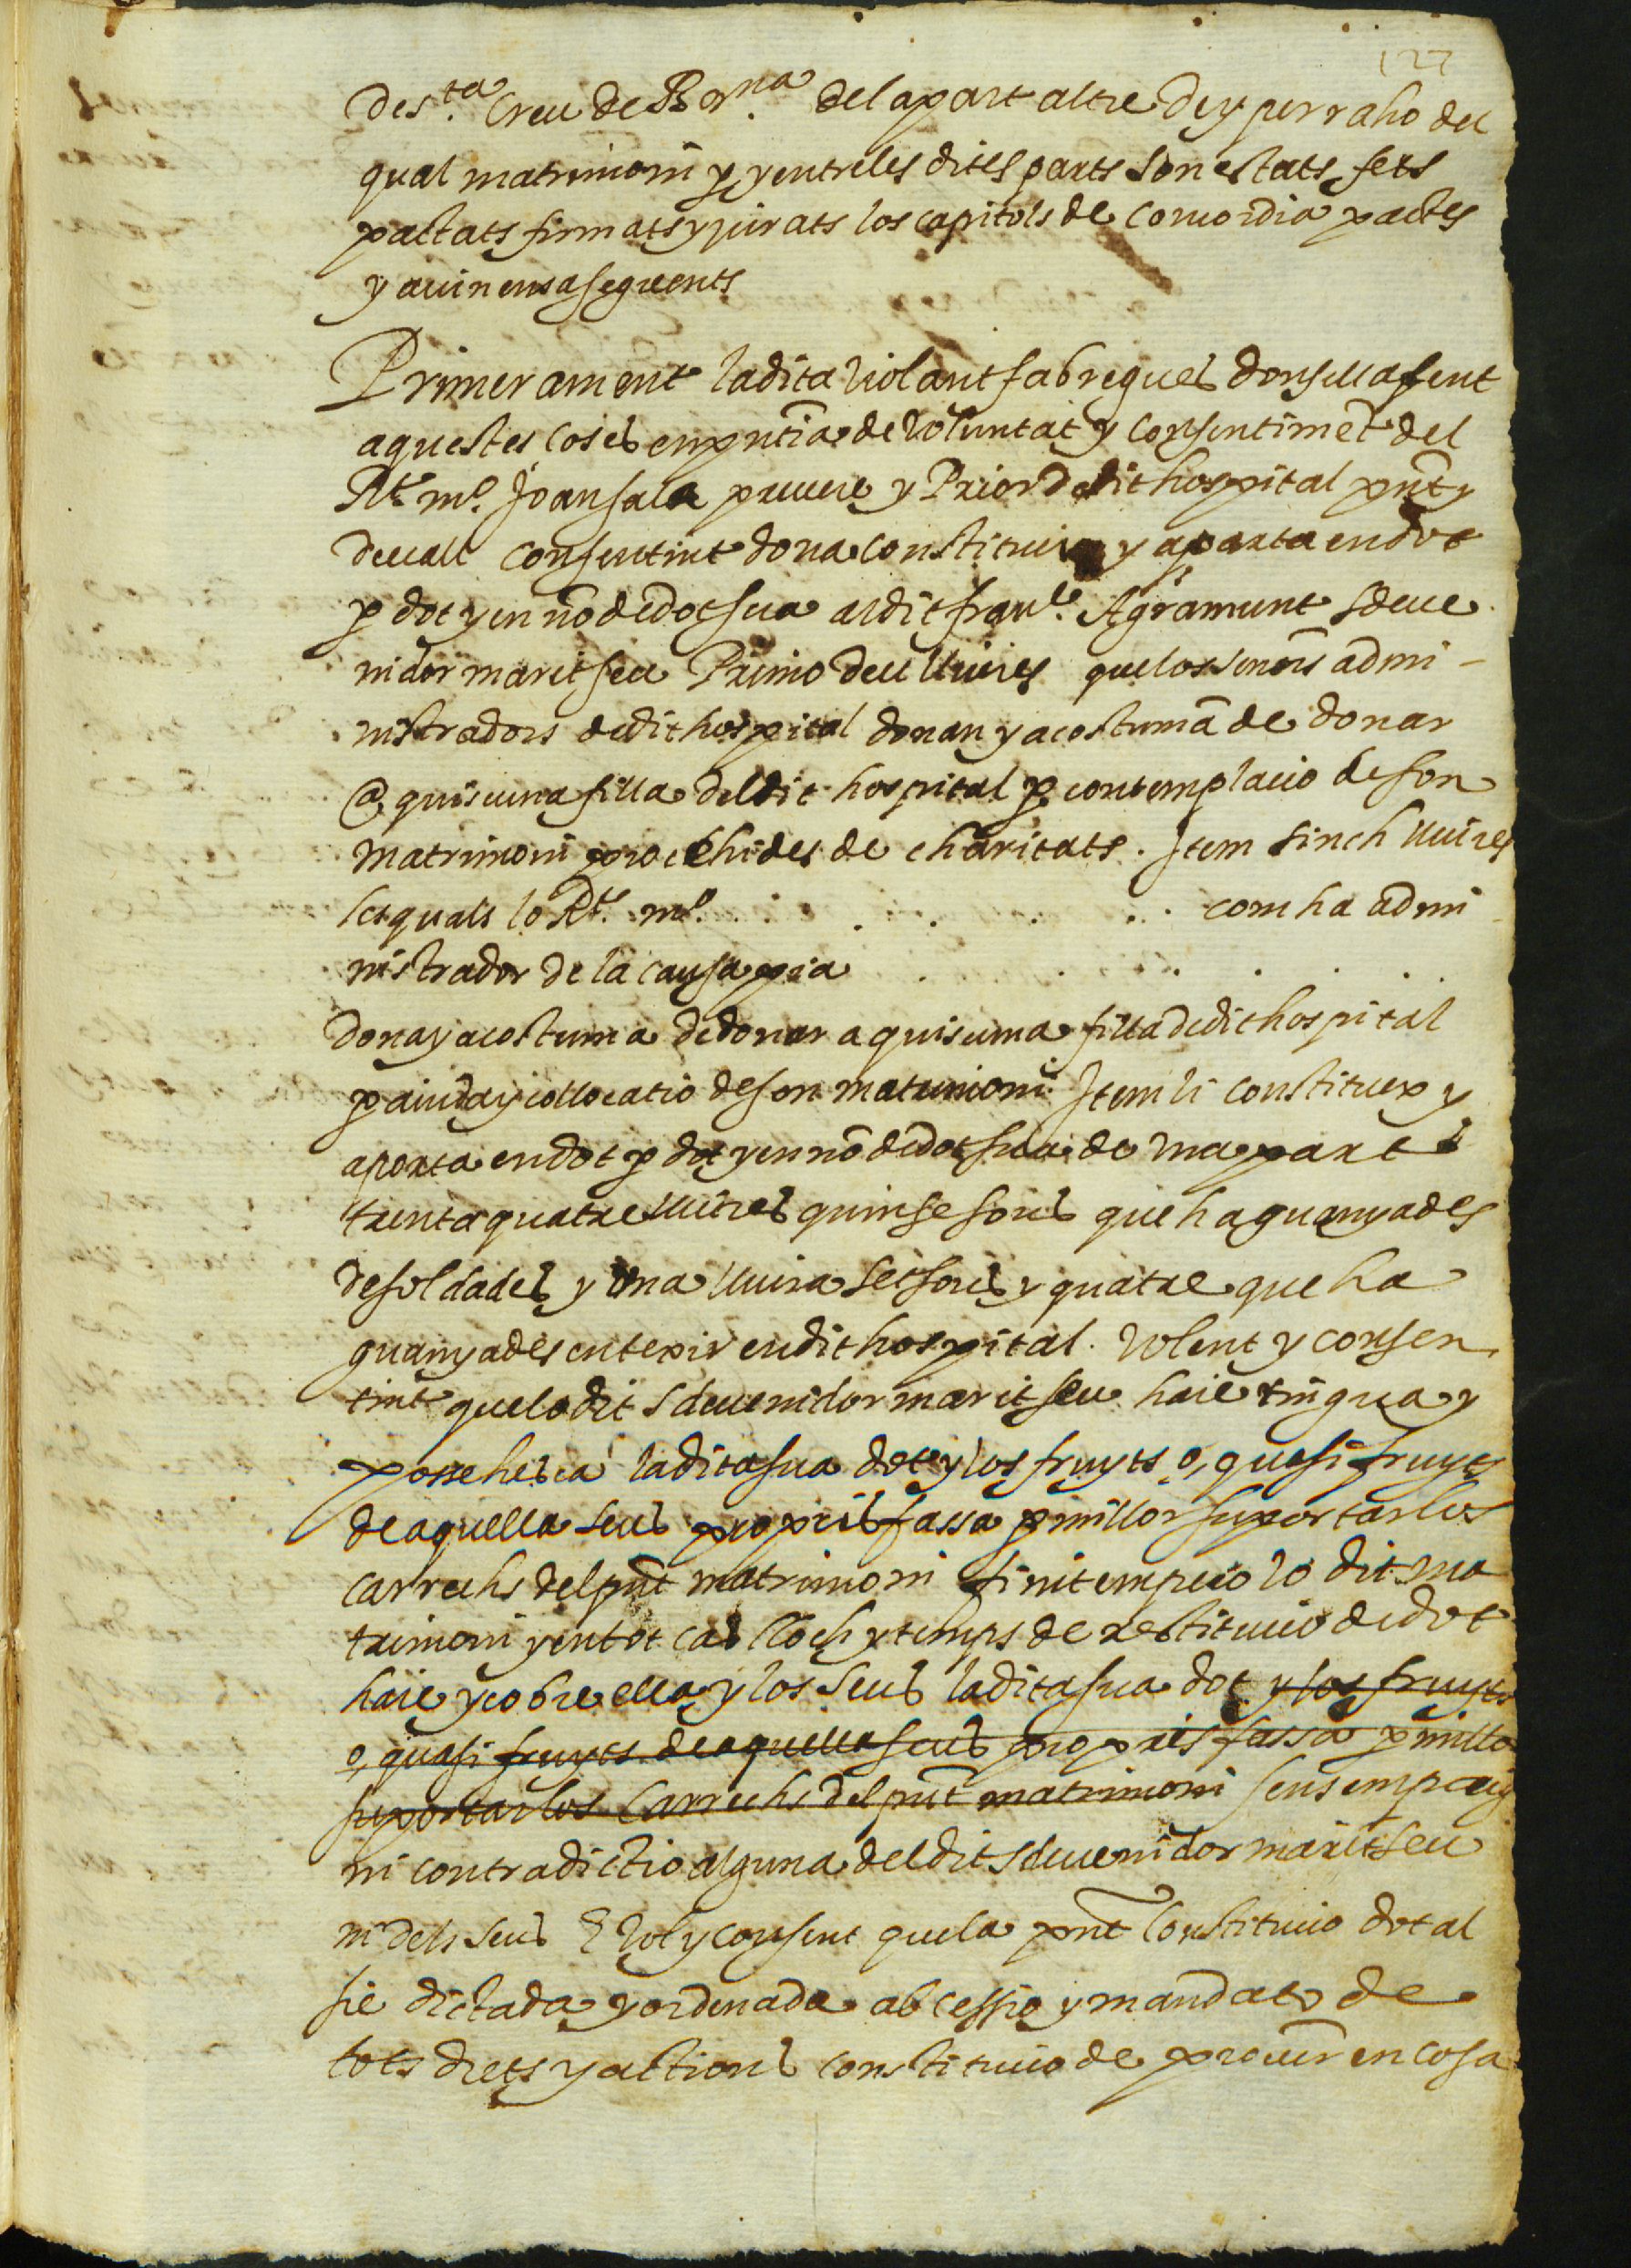 127
de s.ta Creu de Bar.na de la part altre de y per raho del
qual matrimoni p y entre les dites parts son estats fets
pactats firmats y jurats los capitols de concordia pactes
y avinensa seguents
Primerament la dita Violant fabregues donsella fent
aquestes coses en pntia de voluntat y consentimet del
Rt. mº. Joan sala prevere y Prior de dit hospital pnt y
devall consentint dona constitueix y aporta en dot
p dot y en no de dot sua al dit franc. Agramunt sdeve
nidor marit seu Primo deu lliures que los senors admi-
nistradors de dit hospital donan y acostuma de donar
@ quiscuna filla del dit hospital p contemplacio de son
matrimoni procehides de charitats. Item sinch lliures
les quals lo Rt. mº. . . . . . . com ha admi
nistrador de la causa pia . . . . . .
dona y acostuma de donar a quiscuna filla de dit hospital
p aiuda y collocatio de son matrimoni. Item li constituex y
aporta en dot p dot y en no de dot sua de una part
trenta quatre lliures quinse sous que ha guanyades
de soldades y una lliura set sous y quatre que ha
guanyades en texir en dit hospital. Volent y consen
tint que lo dit sdevenidor marit seu haie tingua y
possehesca la dita sua dot y los fruyts o, quasi fruyts
de aquella seus propris fassa p millor suportar los
carrechs del pnt matrimoni finit empero lo dit ma
trimoni y en tot cas lloch y temps de restitucio de dot
haie y cobre ella y los seus la dita sua dot y los fruyts
o, quasi fruyts de aquella seus propris fassa p millor
suportar los carrechs del pnt matrimoni sens empaig
ni contradictio alguna del dit sdevenidor marit seu
ni dels seus E vol y consent que la pnt constitucio dotal
sie dictada y ordenada ab cessio y mandato de
tots drets y actions constitucio de procur en cosa